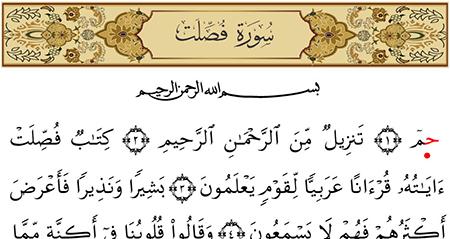 سُورَةُ فُصِّلَتْ
بسم الله الرحمن الرحيم
حمٓ ﴿١﴾ تَنزِيلٌ مِّنَ ٱلرَّحْمَـٰنِ ٱلرَّحِيمِ ﴿٢﴾ كِتَـٰبٌ فُصِّلَتْ
ءَايَـٰتُهُۥ قُرْءَانًا عَرَبِيًّا لِّقَوْمٍ يَعْلَمُونَ ﴿٣﴾ بَشِيرًا وَنَذِيرًا فَأَعْرَضَ
أَكْثَرُهُمْ فَهُمْ لَا يَسْمَعُونَ ﴿٤﴾ وَقَالُوا۟ قُلُوبُنَا فِىٓ أَكِنَّةٍ مِّمَّا